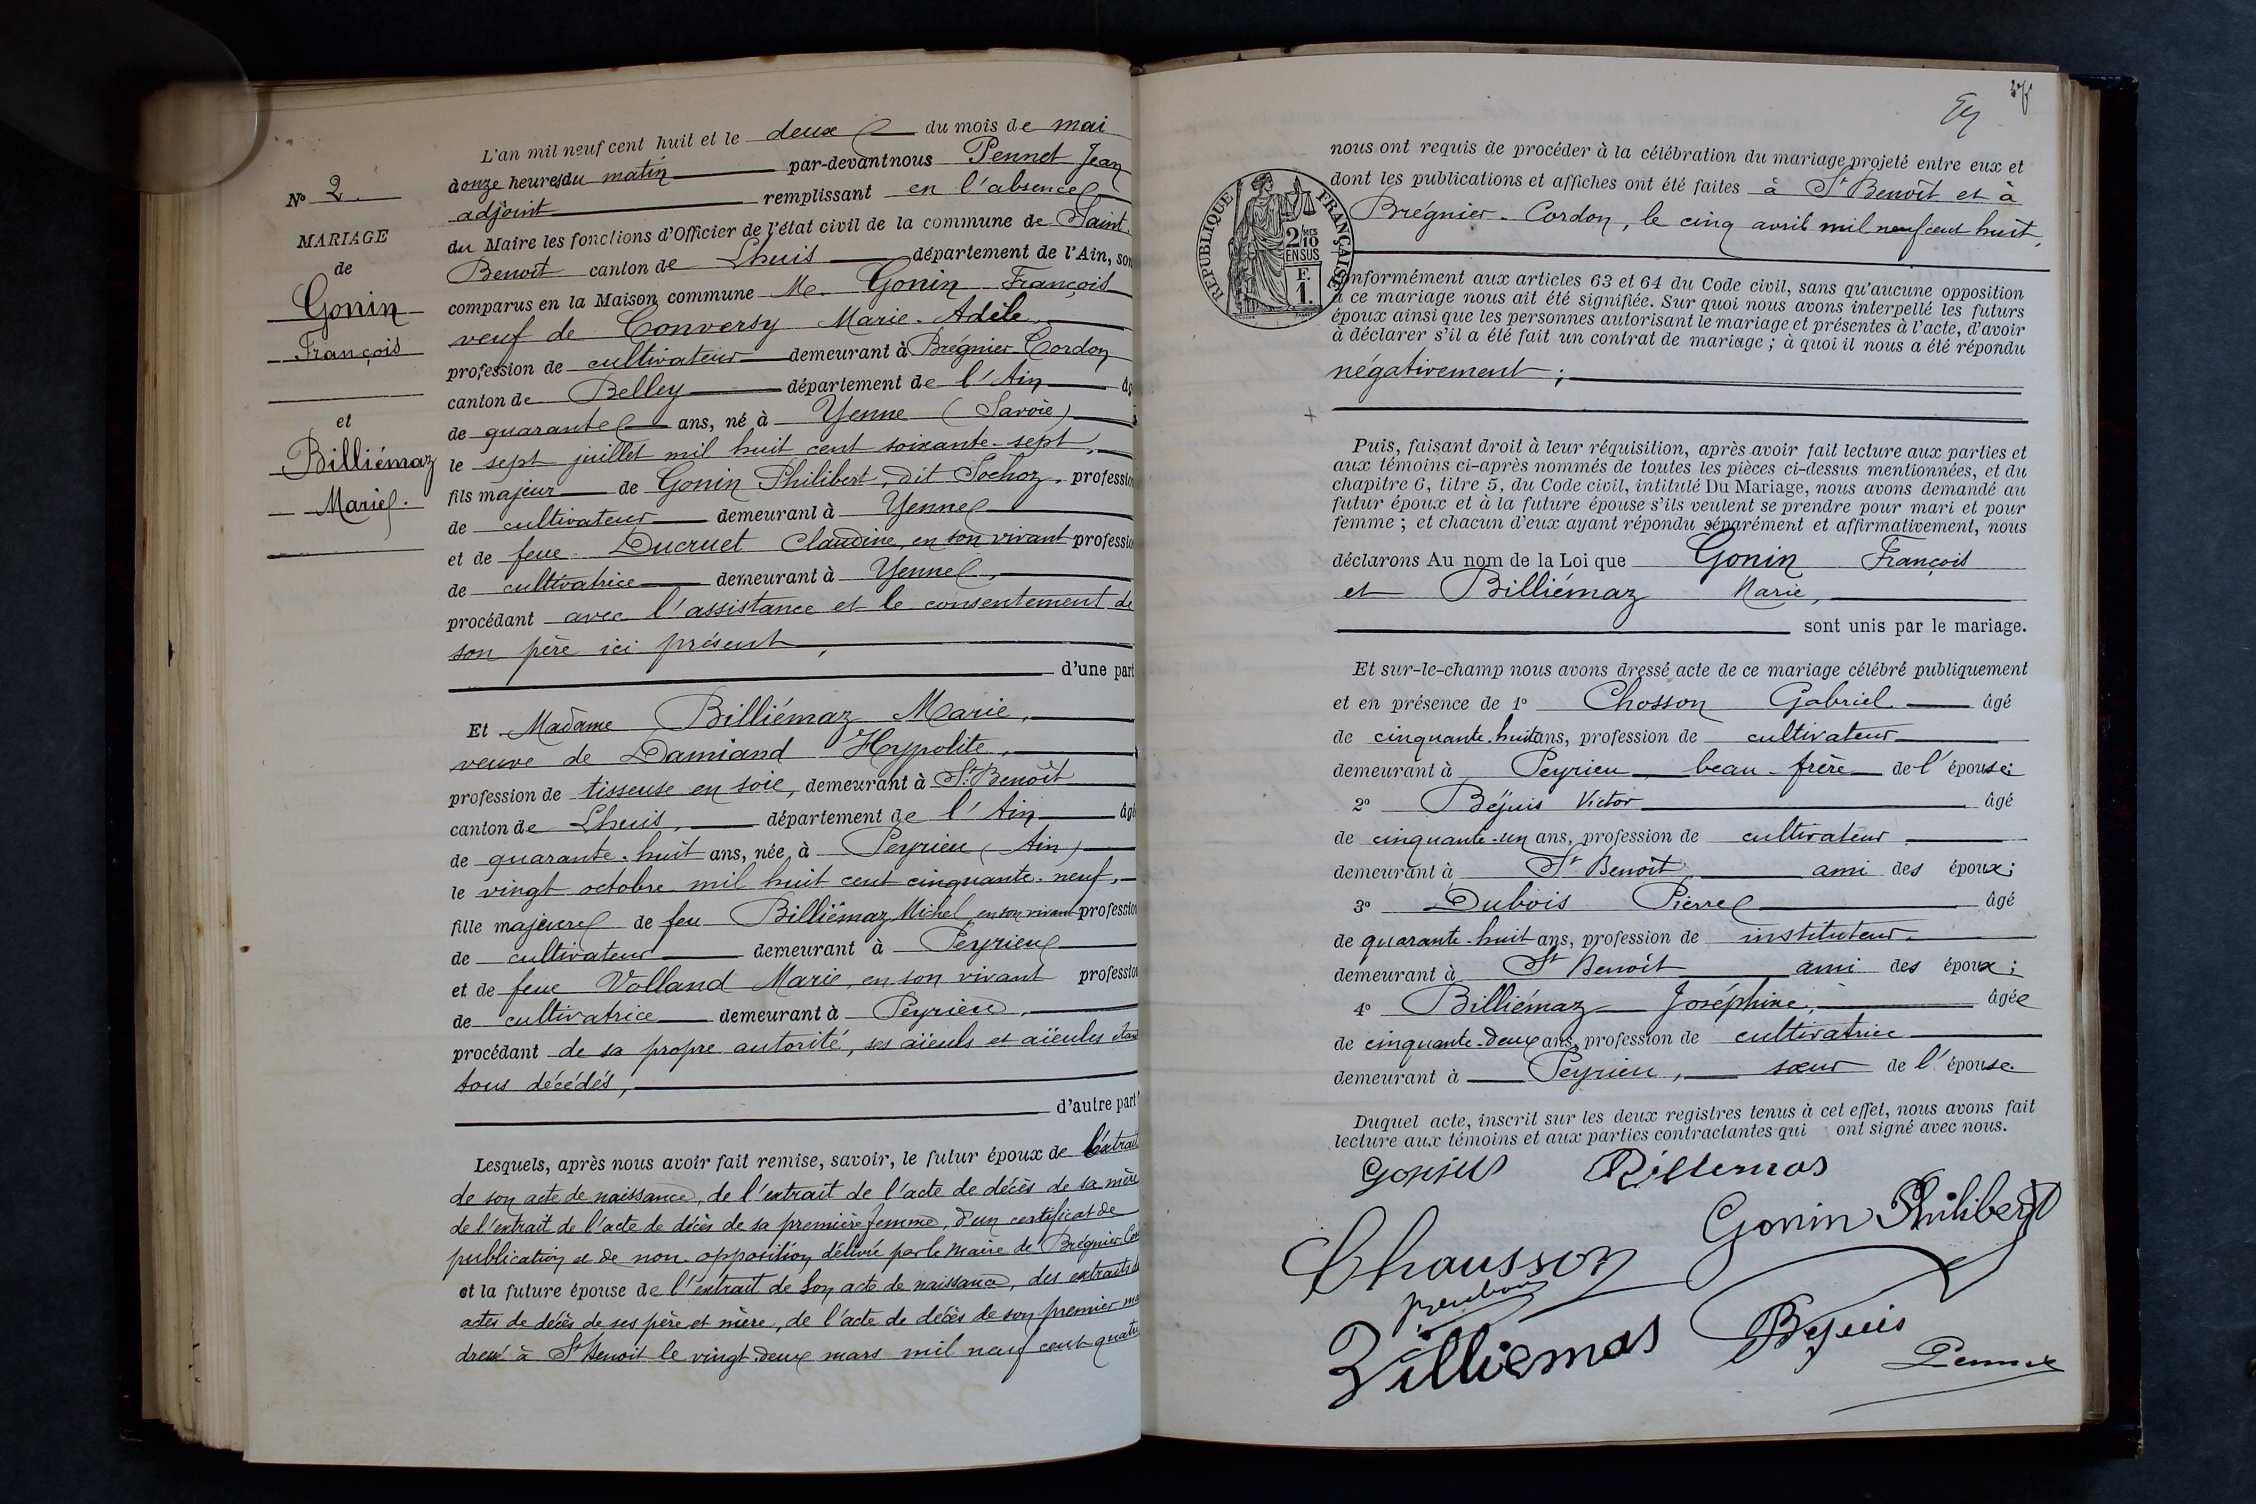 N° 2.
MARIAGE
de
Gonin
François
et
Billiémaz
Marie.
L'an mil neuf cent huit et le deux du mois de mai
à onze heures du matin par-devant nous Pennet Jean
adjoint remplissant en l'absence
du Maire les fonctions d'Officier de l'état civil de la commune de Saint-
Benoît canton de Lhuis département de l'Ain, son
comparus en la Maison commune M. Gonin François
veuf de Conversy Marie-Adèle,
profession de cultivateur demeurant à Brégnier-Cordon
canton de Belley département de l'Ain âg
de quarante ans, né à Yenne (Savoie)
le sept juillet mil huit cent soixante-sept,
fils majeur de Gonin Philibert, dit Sochoz, profession
de cultivateur demeurant à Yenne
et de feue Ducruet Claudine, en son vivant profession
de cultivatrice demeurant à Yenne,
procédant avec l'assistance et le consentement de
son père ici présent,
d'une part
Et Madame Billiémaz Marie,
veuve de Damiand Hypolite,
profession de tisseuse en soie, demeurant à St Benoît
canton de Lhuis, département de l'Ain âgé
de quarante-huit ans, née à Peyrieu (Ain)
le vingt octobre mil huit cent cinquante-neuf,
fille majeure de feu Billiémaz Michel, en son vivant profession
de cultivateur demeurant à Peyrieu
et de feue Volland Marie, en son vivant profession
de cultivatrice demeurant à Peyrieu,
procédant de sa propre autorité, ses aïeuls et aïeules étant
tous décédés,
d'autre part
Lesquels, après nous avoir fait remise, savoir, le futur époux de l'extrait
de son acte de naissance, de l'extrait de l'acte de décès de sa mère
de l'extrait de l'acte de décès de sa première femme, d'un certificat de
publication et de non-opposition, délivré par le Maire de Brégnier-Cor
et la future épouse de l'extrait de son acte de naissance, des extraits d
actes de décès de ses père et mère, de l'acte de décès de son premier ma
dressé à St Benoît le vingt-deux mars mil neuf cent quatre
nous ont requis de procéder à la célébration du mariage projeté entre eux et
dont les publications et affiches ont été faites à St Benoît et à
Brégnier-Cordon, le cinq avril mil neuf cent huit,
RÉPUBLIQUE FRANÇAISE
2/10 MES
EN SUS
F.
1.
conformément aux articles 63 et 64 du Code civil, sans qu'aucune opposition
à ce mariage nous ait été signifiée. Sur quoi nous avons interpellé les futurs
époux ainsi que les personnes autorisant le mariage et présentes à l'acte, d'avoir
à déclarer s'il a été fait un contrat de mariage ; à quoi il nous a été répondu
négativement ;
Puis, faisant droit à leur réquisition, après avoir fait lecture aux parties et
aux témoins ci-après nommés de toutes les pièces ci-dessus mentionnées, et du
chapitre 6, titre 5, du Code civil, intitulé Du Mariage, nous avons demandé au
futur époux et à la future épouse s'ils veulent se prendre pour mari et pour
femme ; et chacun d'eux ayant répondu séparément et affirmativement, nous
déclarons Au nom de la Loi que Gonin François
et Billiémaz Marie,
sont unis par le mariage.
Et sur-le-champ nous avons dressé acte de ce mariage célébré publiquement
et en présence de 1° Chosson Gabriel âgé
de cinquante-huit ans, profession de cultivateur
demeurant à Peyrieu beau-frère de l'épouse;
2° Béjuis Victor âgé
de cinquante-un ans, profession de cultivateur
demeurant à St Benoît, ami des époux;
3° Dubois Pierre âgé
de quarante-huit ans, profession de instituteur
demeurant à St Benoît ami des époux;
4° Billiémaz Joséphine, âgée
de cinquante-deux ans, profession de cultivatrice
demeurant à Peyrieu, sœur de l'épouse.
Duquel acte, inscrit sur les deux registres tenus à cet effet, nous avons fait
lecture aux témoins et aux parties contractantes qui ont signé avec nous.
Gonin
Billemas
Gonin Philibert
Chausson
Billiemas
Bejuis
Pennet